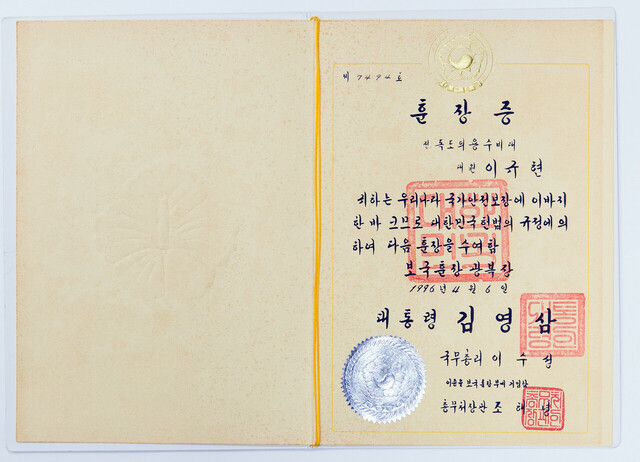 제 7494 호
훈장증
전 독도의용수비대
대원 이규현
귀하는 우리나라 국가안전보장에 이바지
한 바 크므로 대한민국헌법의 규정에 의
하여 다음 훈장을 수여함
보국훈장 광복장
1996년 4월 6일
대통령 김영삼
국무총리 이수성
이 증을 보국훈장부에 기입함
총무처장관 조해녕